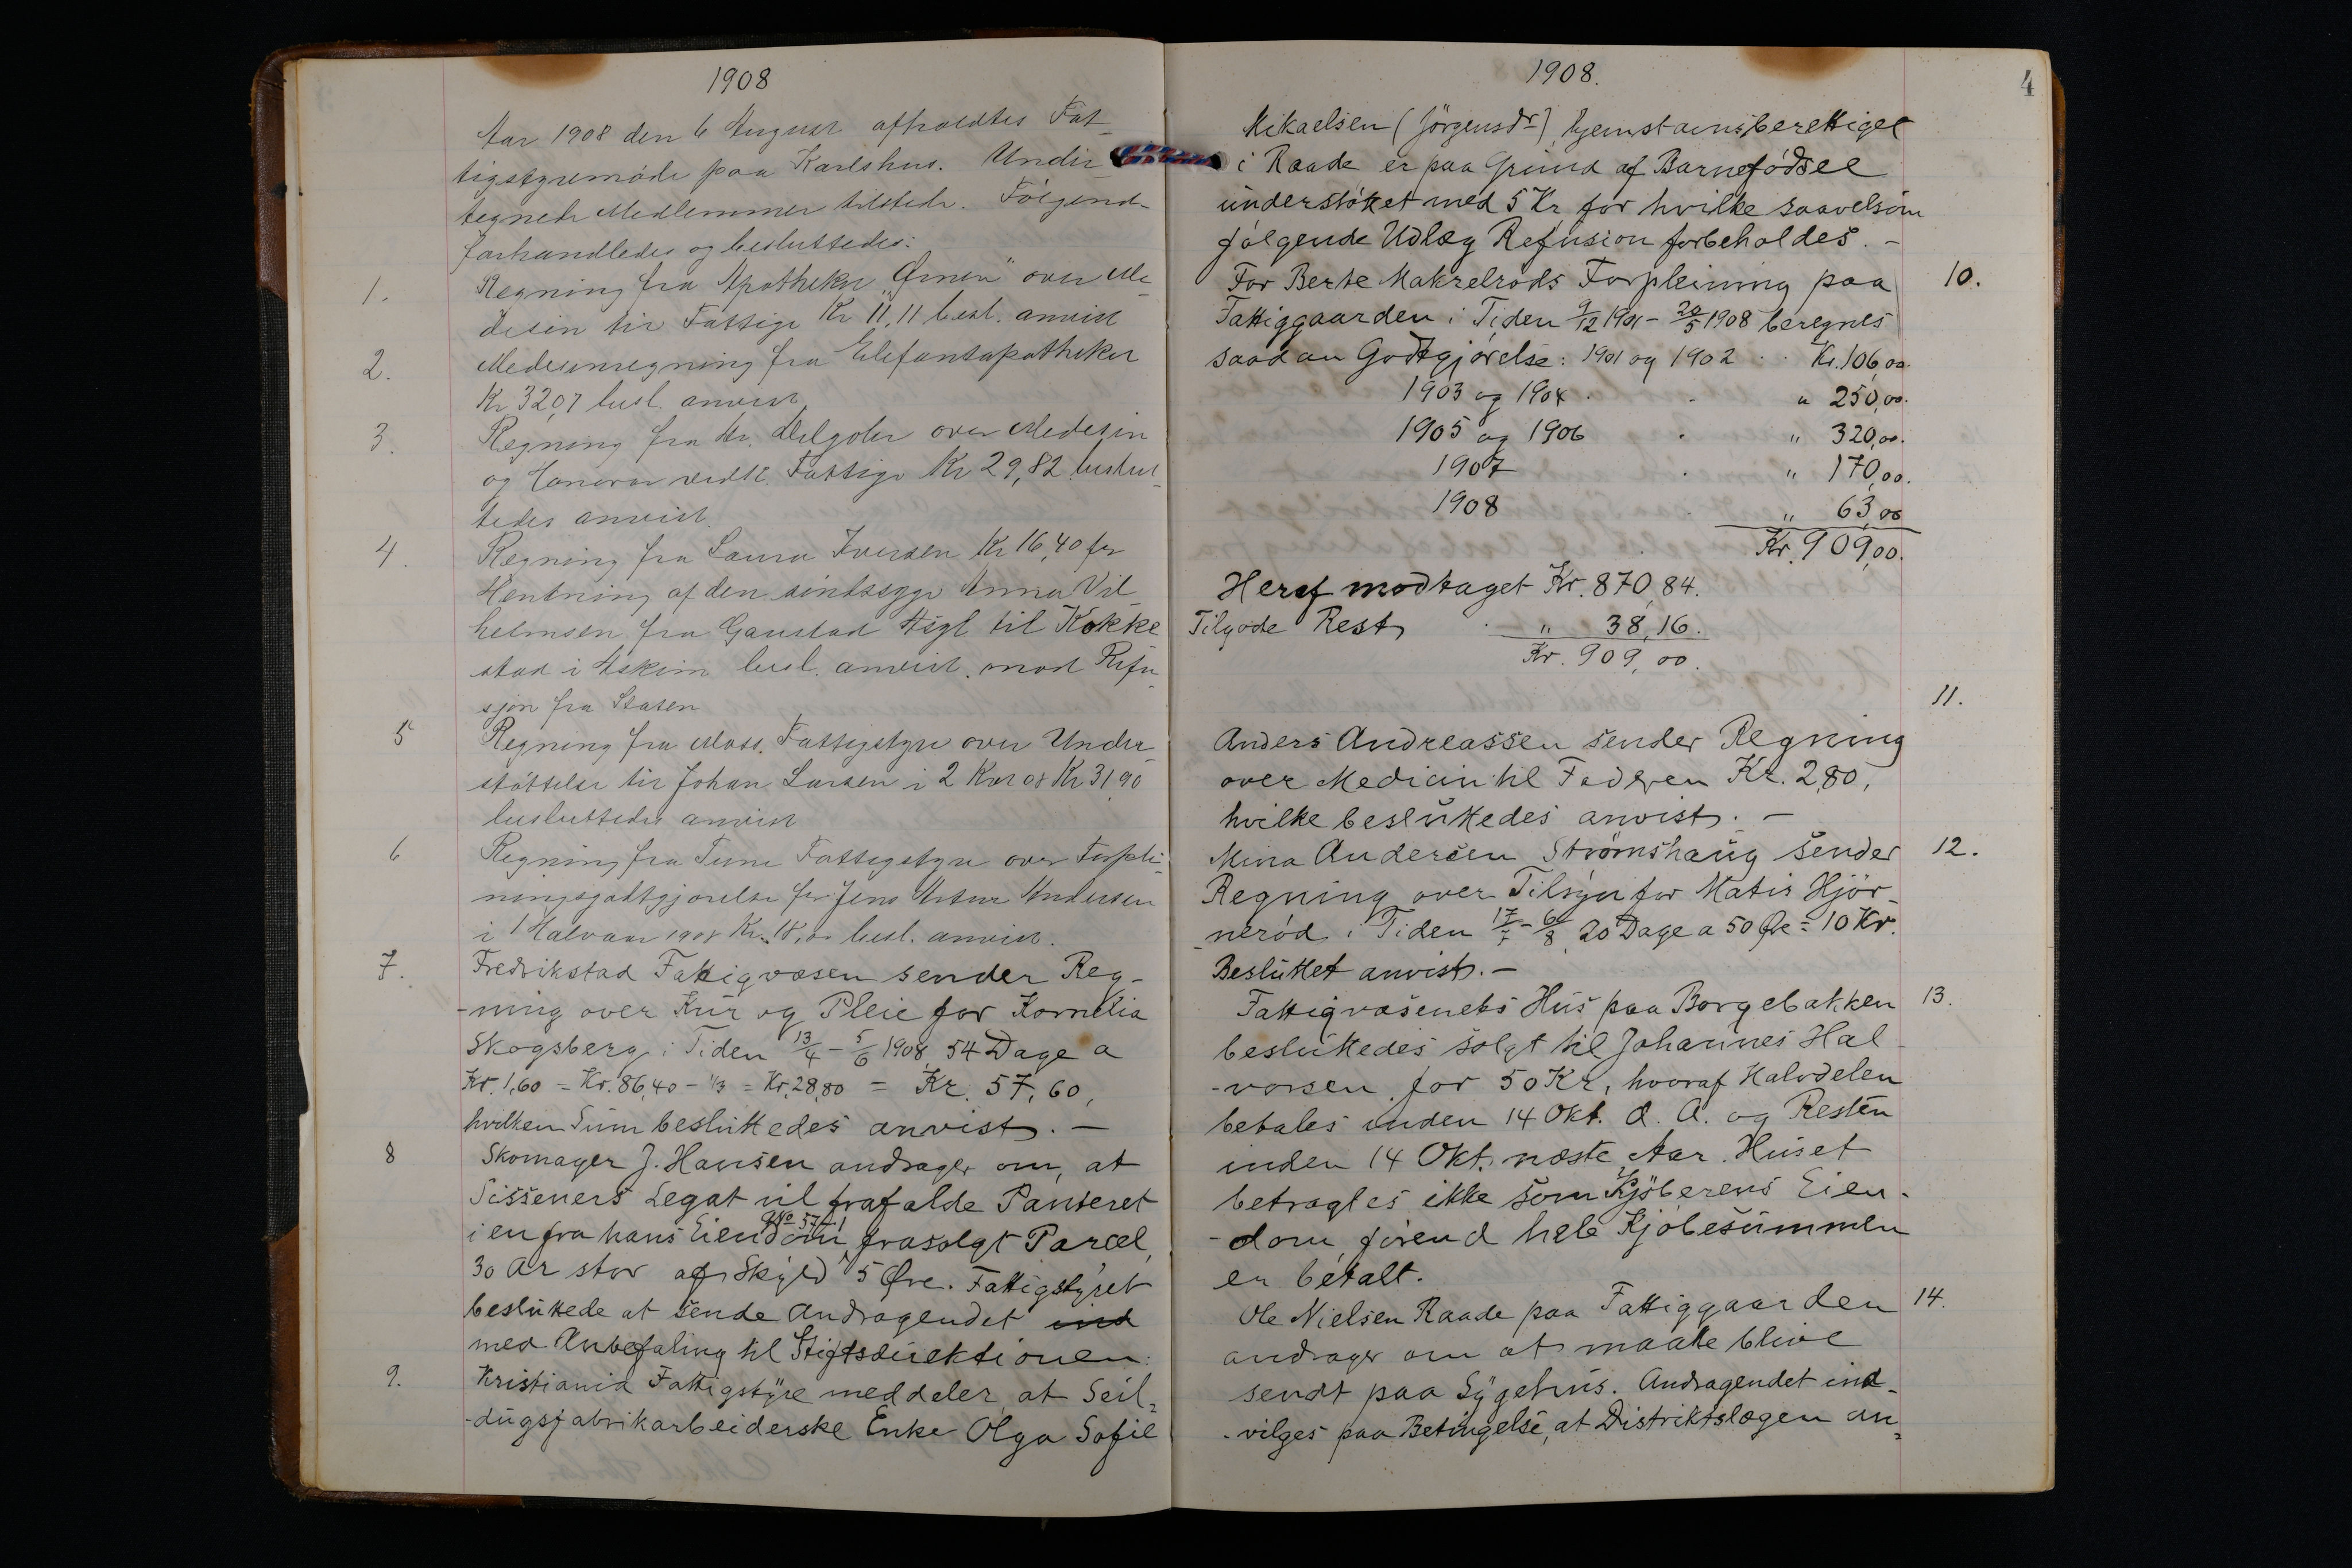 1908
Aar 1908 den 6 August afholdtes Fat-
tigstyremöde paa Karlshus. Under-
tegnede Medlemmer tilstede. Fölgende
forhandledes og besluttedes:
1. Regning fra Apotheket "Örnen" over Me-
desin til Fattige Kr 11,11 besl. anvist
2. Medesinregning fra Elefantapotheket
Kr 32,07 besl. anvist
3. Regning fra Dr. over Medesin
og Honorar vedk. Fattige Kr 29,82 beslut-
tedes anvist.
4. Regning fra Laura Iversen Kr 16,40 for
Hentning af den sindssyge Anna Vil-
helmsen fra Gaustad Asyl til Kokke
stad i Askim besl. anvist. mod Refu-
sjon fra Staten
5 Regning fra Moss. Fattigstyre over Under-
stöttelse til Johan Larsen i 2 Kvr 08 Kr 31,90
besluttedes anvist
6 Regning fra Tune Fattigstyre over Forplei-
ningsgodtgjörelse for Jens Artur Andersen
i 1 Halvaar 1908 Kr. 18,00 besl. anvist.
7. Fredrikstad Fattigvæsen sender Reg-
-ning over Kur og Pleie for Kornelia
Skogsberg i Tiden 13/4 - 5/6 1908 54 Dage a
Kr. 1,60 = Kr. 86,40 - 1/3 = Kr. 28,80 = Kr. 57,60,
hvilken Sum besluttedes anvist. -
8 Skomager J. Hansen andrager om, at
Sisseners Legat vil frafalde Panteret
i en fra hans Eiendom GNo 57/1 frasolgt Parcel,
30 Ar stor af Skyld 5 Øre. Fattigstyret
besluttede at sende Andragendet ind
med Anbefaling til Stiftsdirektionen.
9. Kristiania Fattigstyre meddeler, at Seil-
-dugsfabrikarbeiderske Enke Olga Sofie
1908.
4
Mikaelsen (Jörgensdr) hjemstavnsberettiget
i Raade er paa Grund af Barnefödsel
understöttet med 5 Kr, for hvilke saavelsom
fölgende Udlæg Refusion forbeholdes. -
10. For Berte Makrelröds Forpleining paa
Fattiggaarden i Tiden 9/12 1901 - 20/5 1908 beregnes
saadan Godtgjörelse: 1901 og 1902 . . Kr. 106,00.
1903 og 1904 . . " 250,00.
1905 og 1906 . " 320,00.
1907 . " 170,00.
1908 . " 63,00
Kr. 909,00.
Heraf modtaget Kr. 870,84.
Tilgode Rest . " 38,16.
Kr. 909,00.
11.
Anders Andreassen sender Regning
over Medicin til Faderen Kr. 2,80,
hvilke besluttedes anvist. -
12. Mina Andersen Strömshaug sender
Regning over Tilsyn for Matis Hjör-
-neröd i Tiden 17/7 - 6/8 20 Dage a 50 Øre = 10 Kr.
Besluttet anvist. -
13. Fattigvæsenets Hus paa Borgebakken
besluttedes solgt til Johannes Hal-
-vorsen for 50 Kr, hvoraf Halvdelen
betales inden 14 Okt. d. A. og Resten
inden 14 Okt. næste Aar. Huset
betragtes ikke som Kjöberens Eien-
-dom, förend hele Kjöbesummen
er betalt.
14. Ole Nielsen Raade paa Fattiggaarden
andrager om at maatte blive
sendt paa Sygehus. Andragendet ind-
-vilges paa Betingelse, at Distriktslægen an-